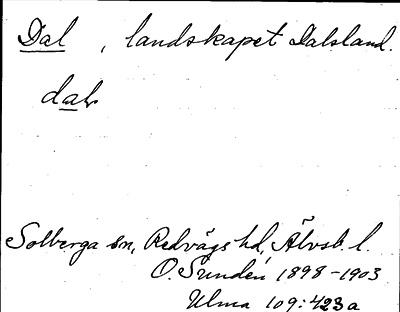 Dal , landskapet Dalsland.
dal
Solberga sn, Redvägs hd, Älvsb. l.
O. Sundén 1898-1903
Ulma 109:423a